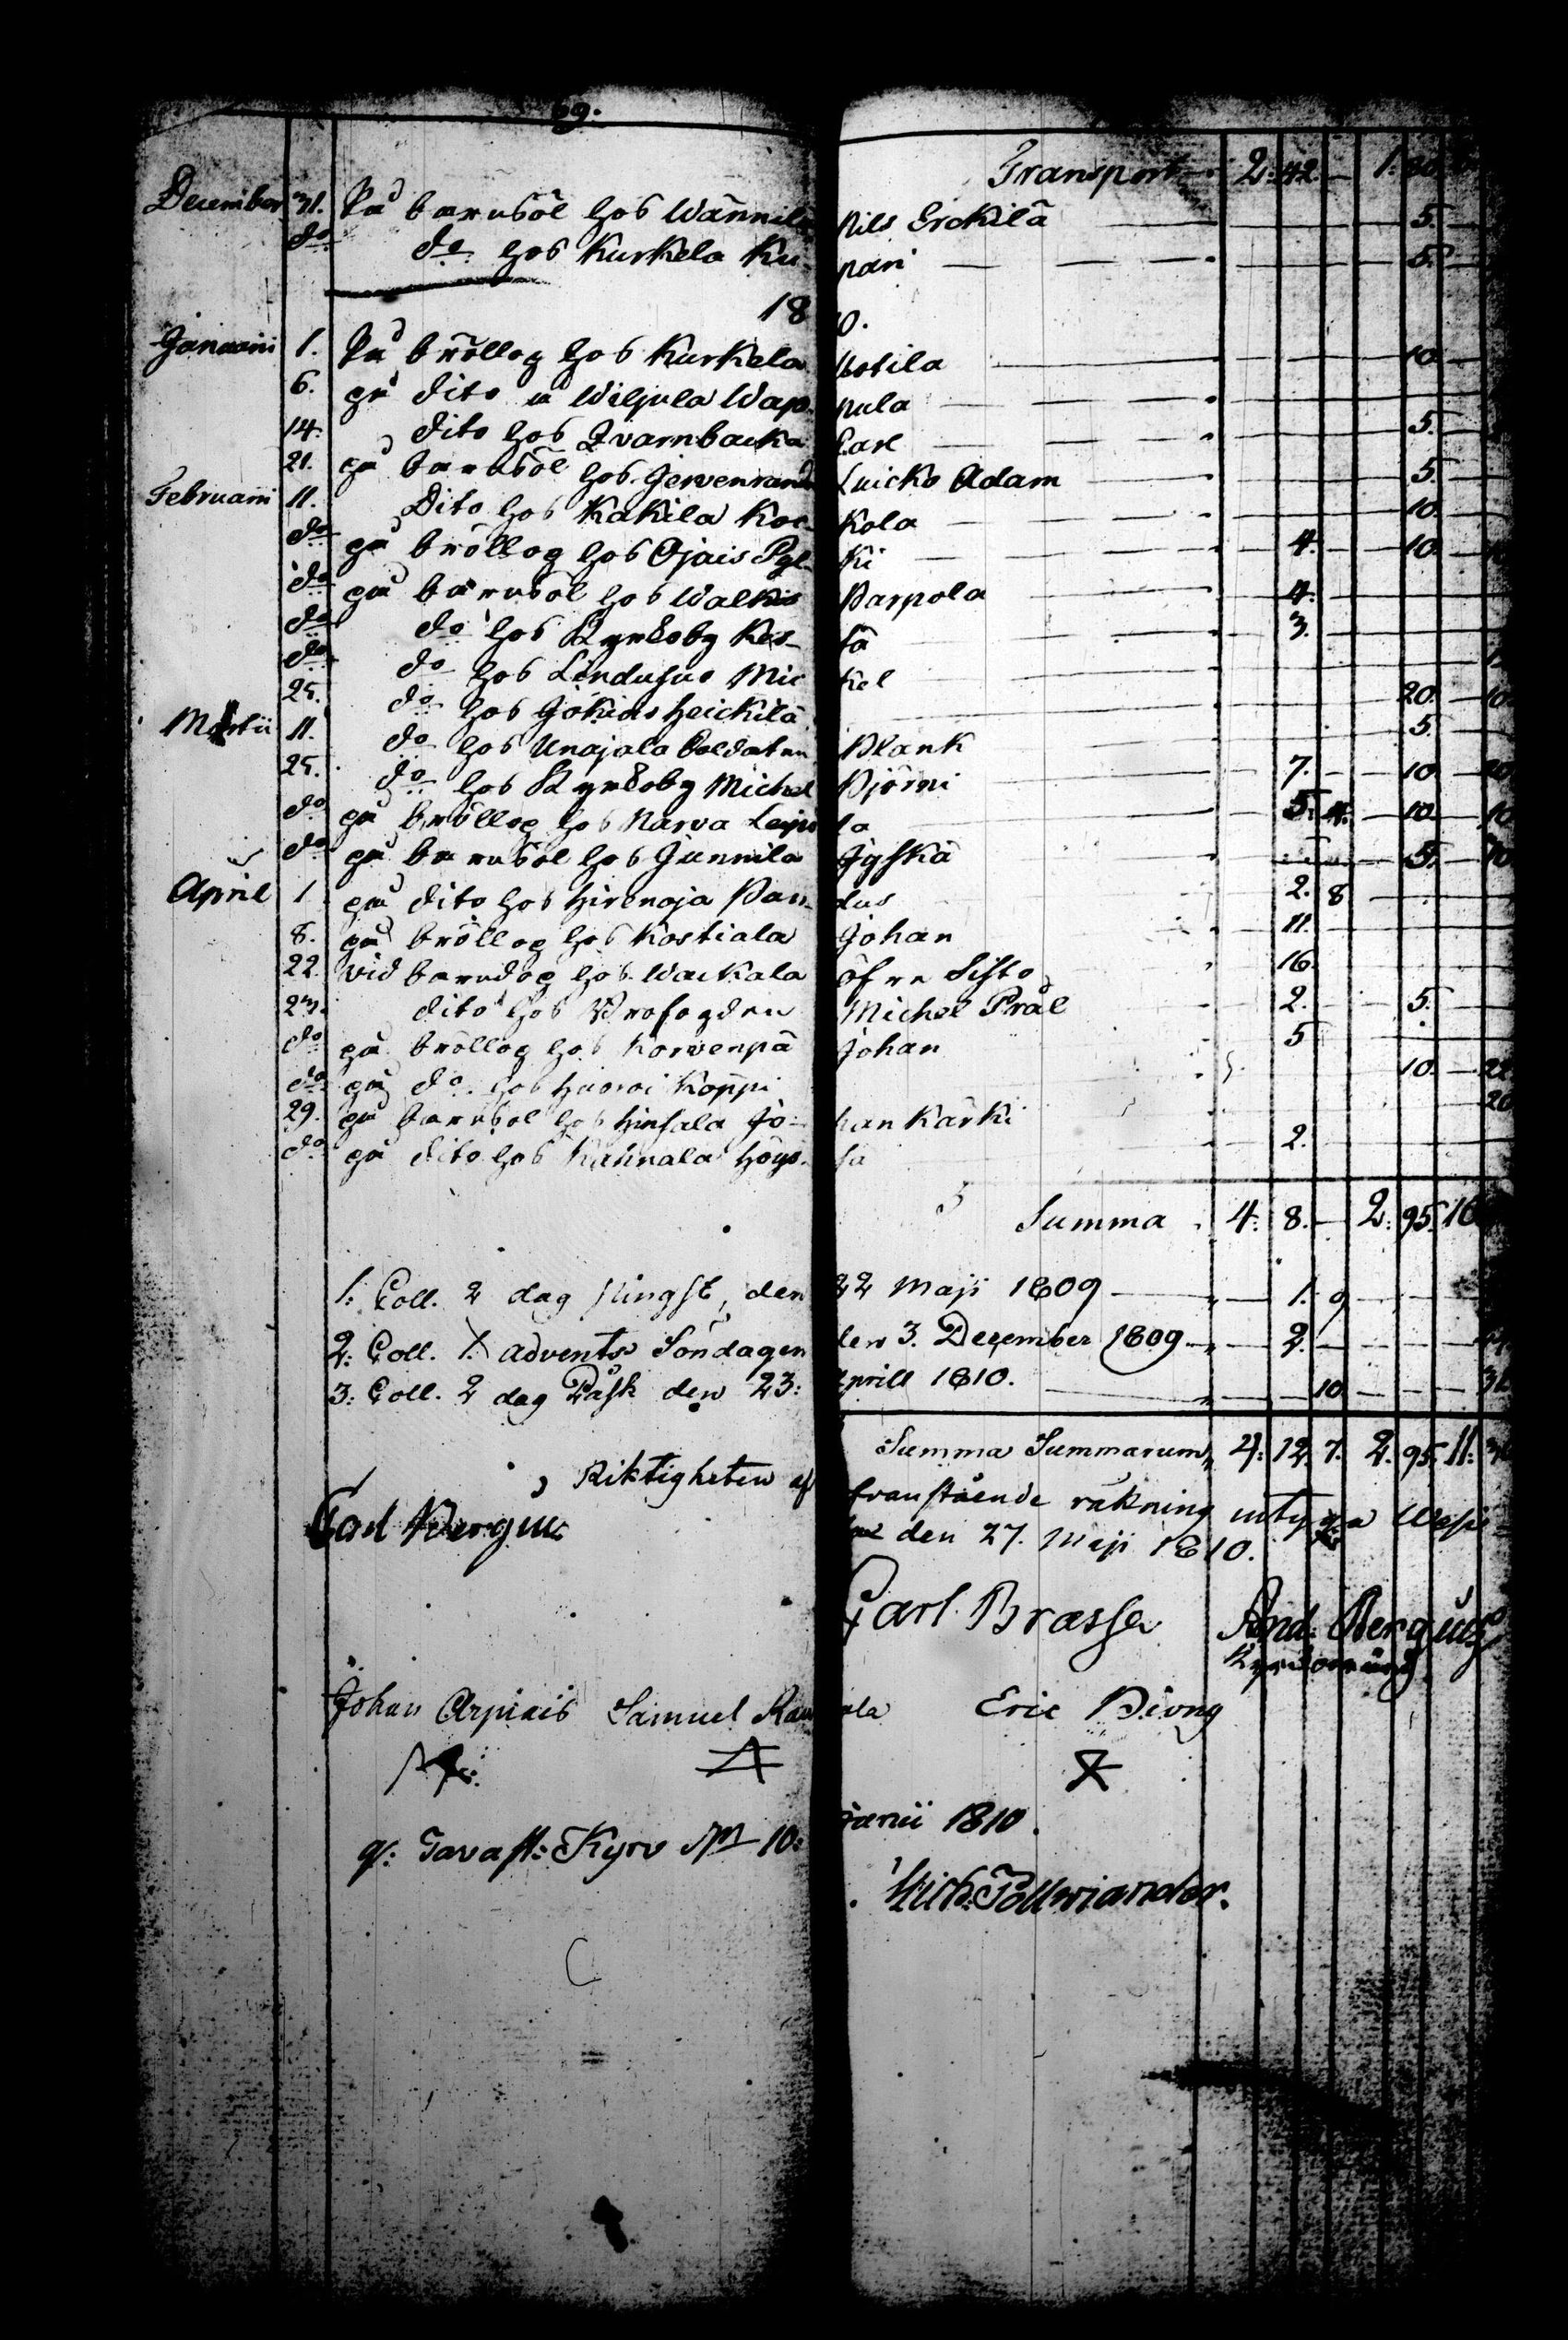 69.
Transport 2: 42. — 1: 30.
December 31. På barnsöl hos Wännilä Nils Erckilä — 5. —
do do hos Kurkela Ku- pari — 5. —
1810.
Januarii 1. På bröllop hos Kurkela Uotila — 10. —
6. på dito i Wiljula Wap- pula —
14. dito hos Qvarnbacka Carl — 5.
21. på barnsöl hos Jervenranda Luicko Adam — 5. —
Februarii 11. Dito hos Kakila Koc- kola — 10. —
do på bröllop hos Ojais Pyl- ki — 4. — 10. —
do på barnsöl hos Walkis Parpola — 4.
do do hos Kyrkoby Kos- sä — 3.
do do hos Lindusuo Mic kel
25. do hos Jokiois Heickilä — 20. — 10.
Martii 11. do hos Unajala Soldaten Blank — 5. —
25. do hos Kyrkoby Michel Björni — 7. — 10. — 20
do på bröllop hos Narva Leipi la — 5. 4. — 10. — 10.
do på barnsöl hos Junnila Jyskä — 5. — 10
April 1 på dito hos Hirsnoja Pan- dus 2. 8
8. på bröllop hos Kostiala Johan 11.
22. vid barndop hos Wackala öfre Sisto 16.
23. dito hos Profogden Michel Prål 2. 5.
do på bröllop hos Korvenpä Johan 5
do på do hos Koppi 10. — 22
29. på barnsöl hos Hinsala Jo- han Kärki 20
do på dito hos Kahnala Höys- sä 2.
Summa 4: 8. — 2: 95. 10
1: Coll. 2 dag Pingst, den 22 Maji 1809 — 1. 9
2: Coll. 1. Advents Söndagen den 3. December 1809 — 2. —
3: Coll. 2 dag Påsk den 23: Aprill 1810. — 10 — 36
Summa Summarum, 4: 12. 7. 2. 95. 11:
Riktigheten af franstående räkning intyga Wesi-
den 27. Maji 1810.
Carl Bergius
Carl Brasse And: Bergius
Johan Arpiais Samuel Rau ala Eric Biong
q: Tavast: Kyro 10: Junii 1810.
Mich: Pollviander.